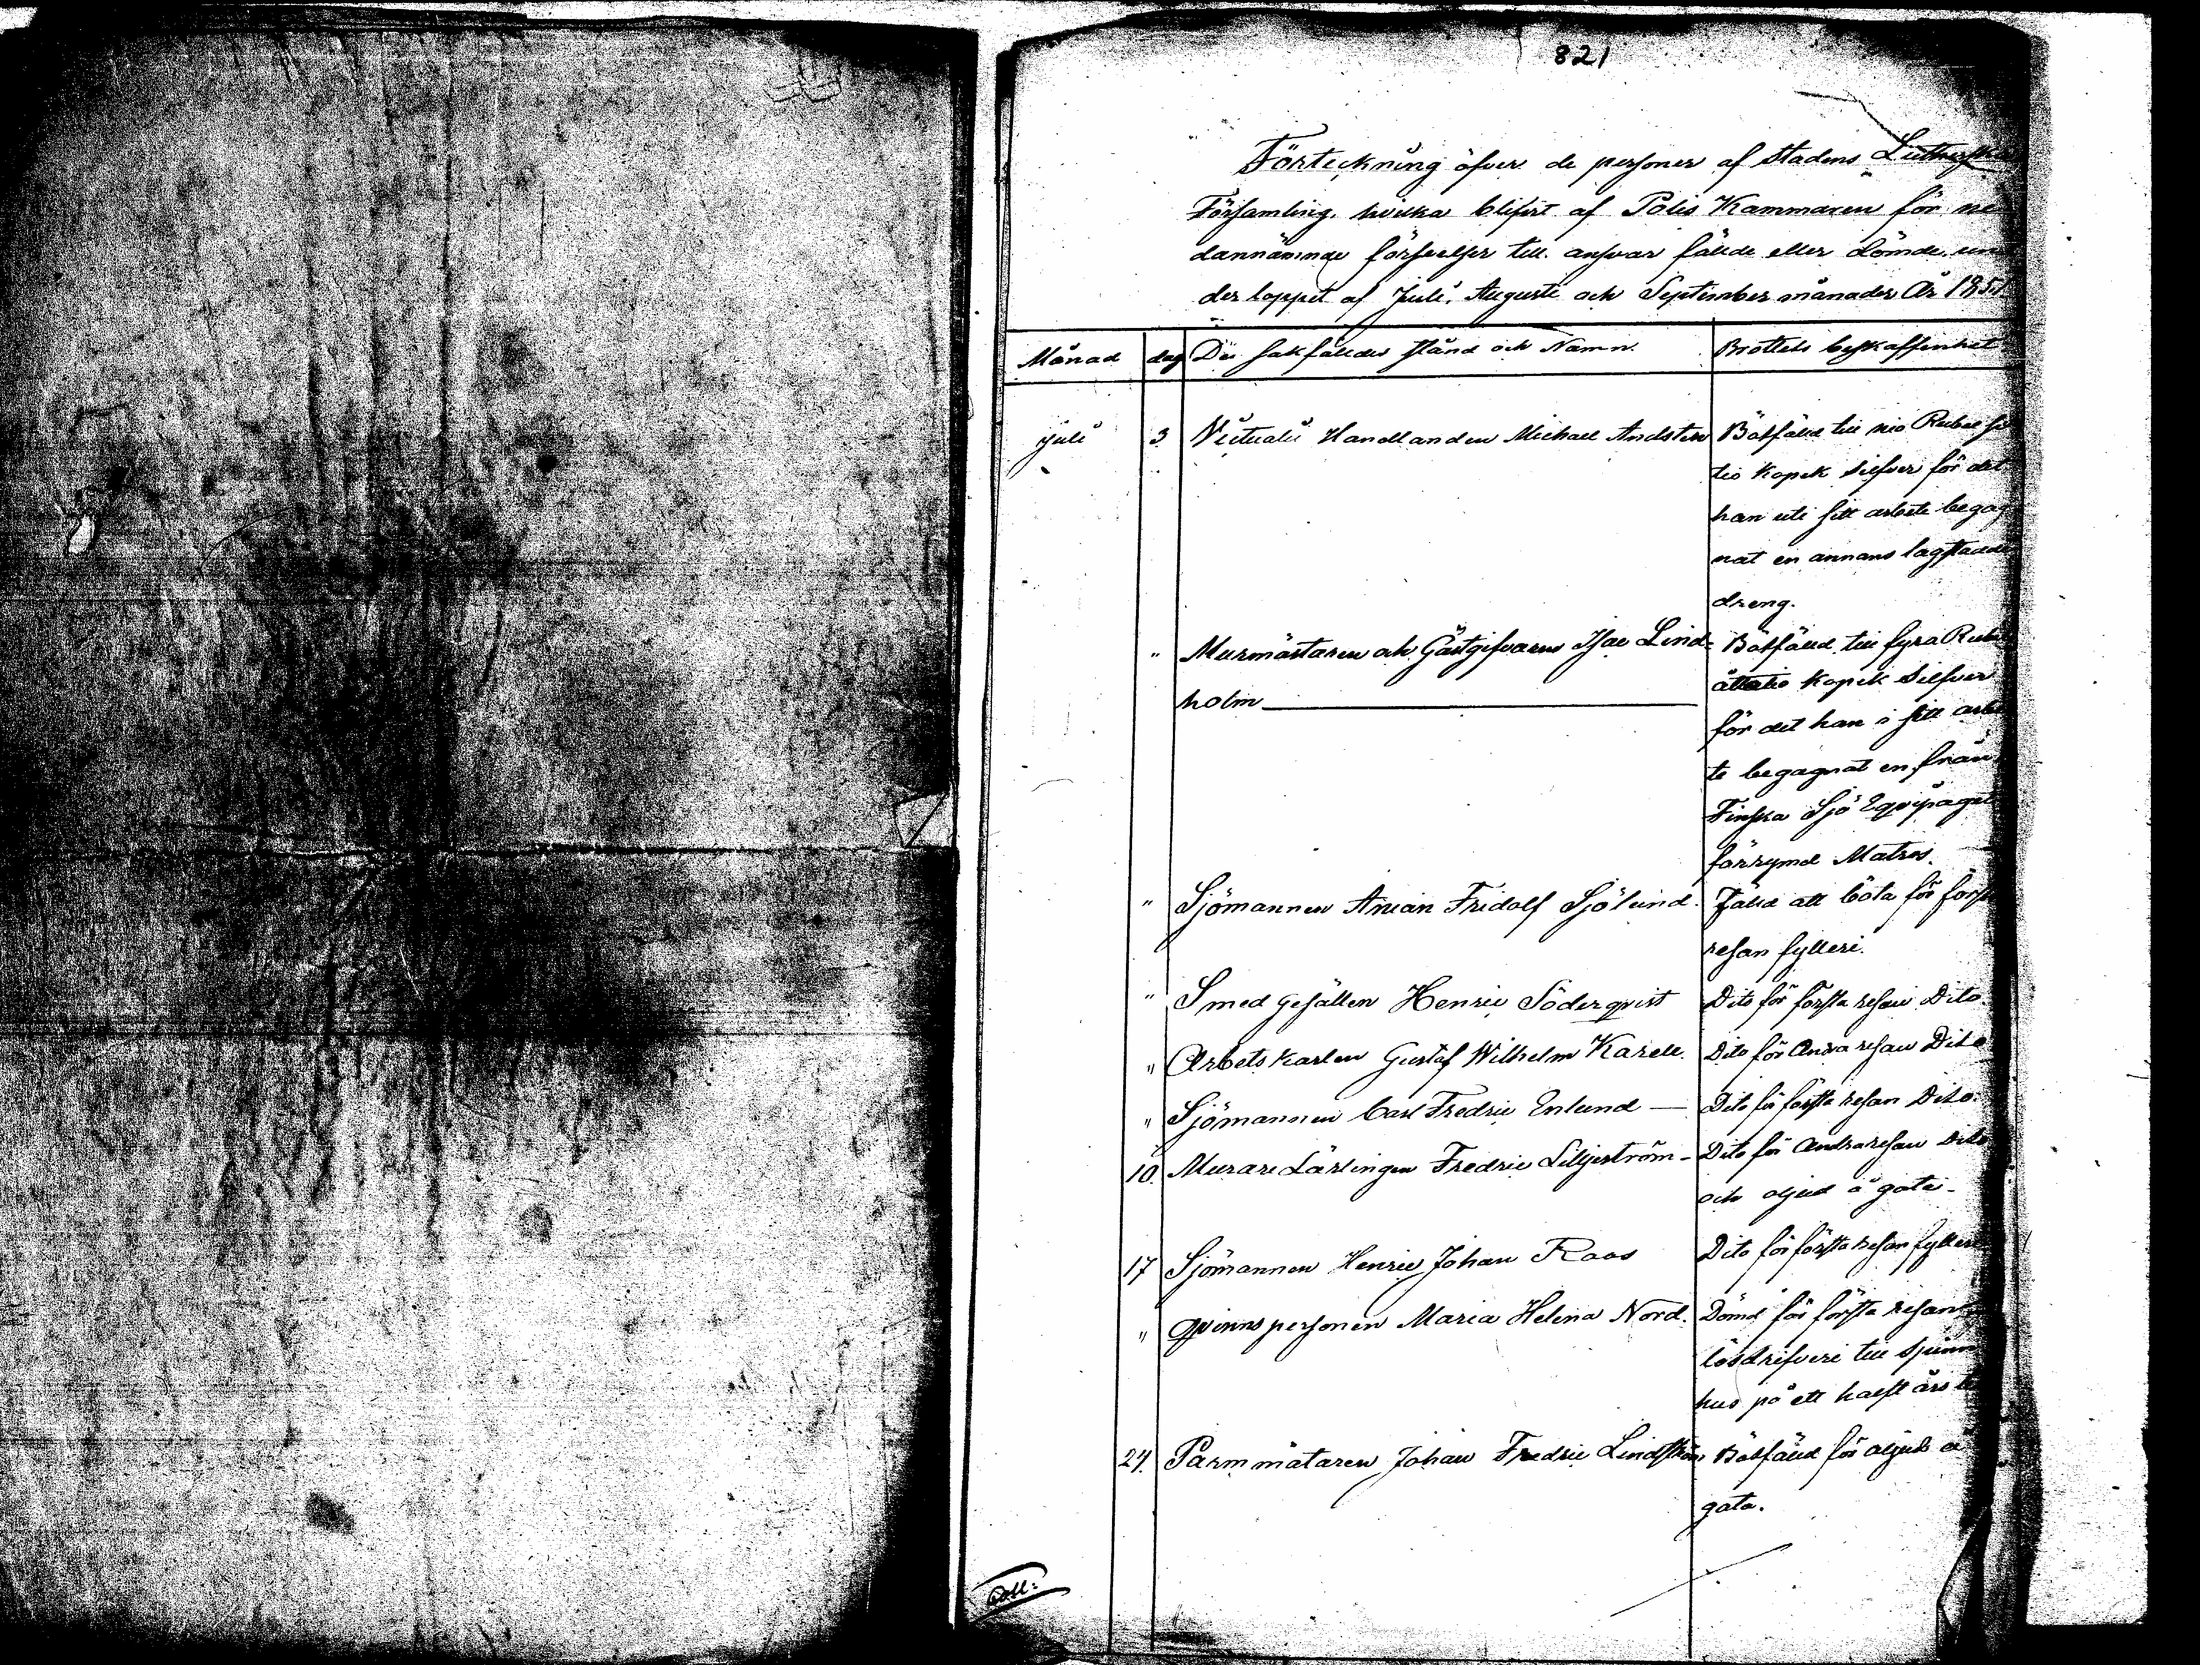 821
Förteckning öfver de personer af Stadens Lutherska
Församling, hvilka blifvit af Polis Kammaren för ne
dannämnde förseelser till ansvar fälde eller dömde, un
der loppet af Juli, Augusti och September månader År 185
Månad dag De sakfälldes stånd och Namn. Brottets beskaffenhet
Juli 3 Victuali Handlanden Michael Andsten Bötfälld till nio Rubel
tio Kopek Silfver för det
han uti sitt arbete begag
nat en annans lagstadde
dreng.
" Murmästaren och Gästgifvaren Isac Lind- Bötfälld till fyra Rubel
holm åttatio Kopek Silfver
för det han i sitt arbe
te begagnat en från
Finska Sjö Eqvipaget
förrymd Matros.
" Sjömannen Anian Fridolf Sjölund. Fälld att böta för första
resan fylleri.
" Smed gesällen Henric Söderqvist Dito för första resan Dito
" Arbetskarlen Gustaf Wilhelm Karell. Dito för Andra resan Dito
" Sjömannen Carl Fredric Enlund — Dito för första resan Dito.
10. Murare Lärlingen Fredric Liljeström - Dito för Andra resan Dito
och oljud å gata -
17 Sjömannen Henric Johan Roos Dito för första resan fylleri
" Qvinns personen Maria Helena Nord. Dömd för första resan
lösdrifveri till Spinn
hus på ett halft års
24. Parmmätaren Johan Fredric Lindström Bötfälld för oljud å
gata.